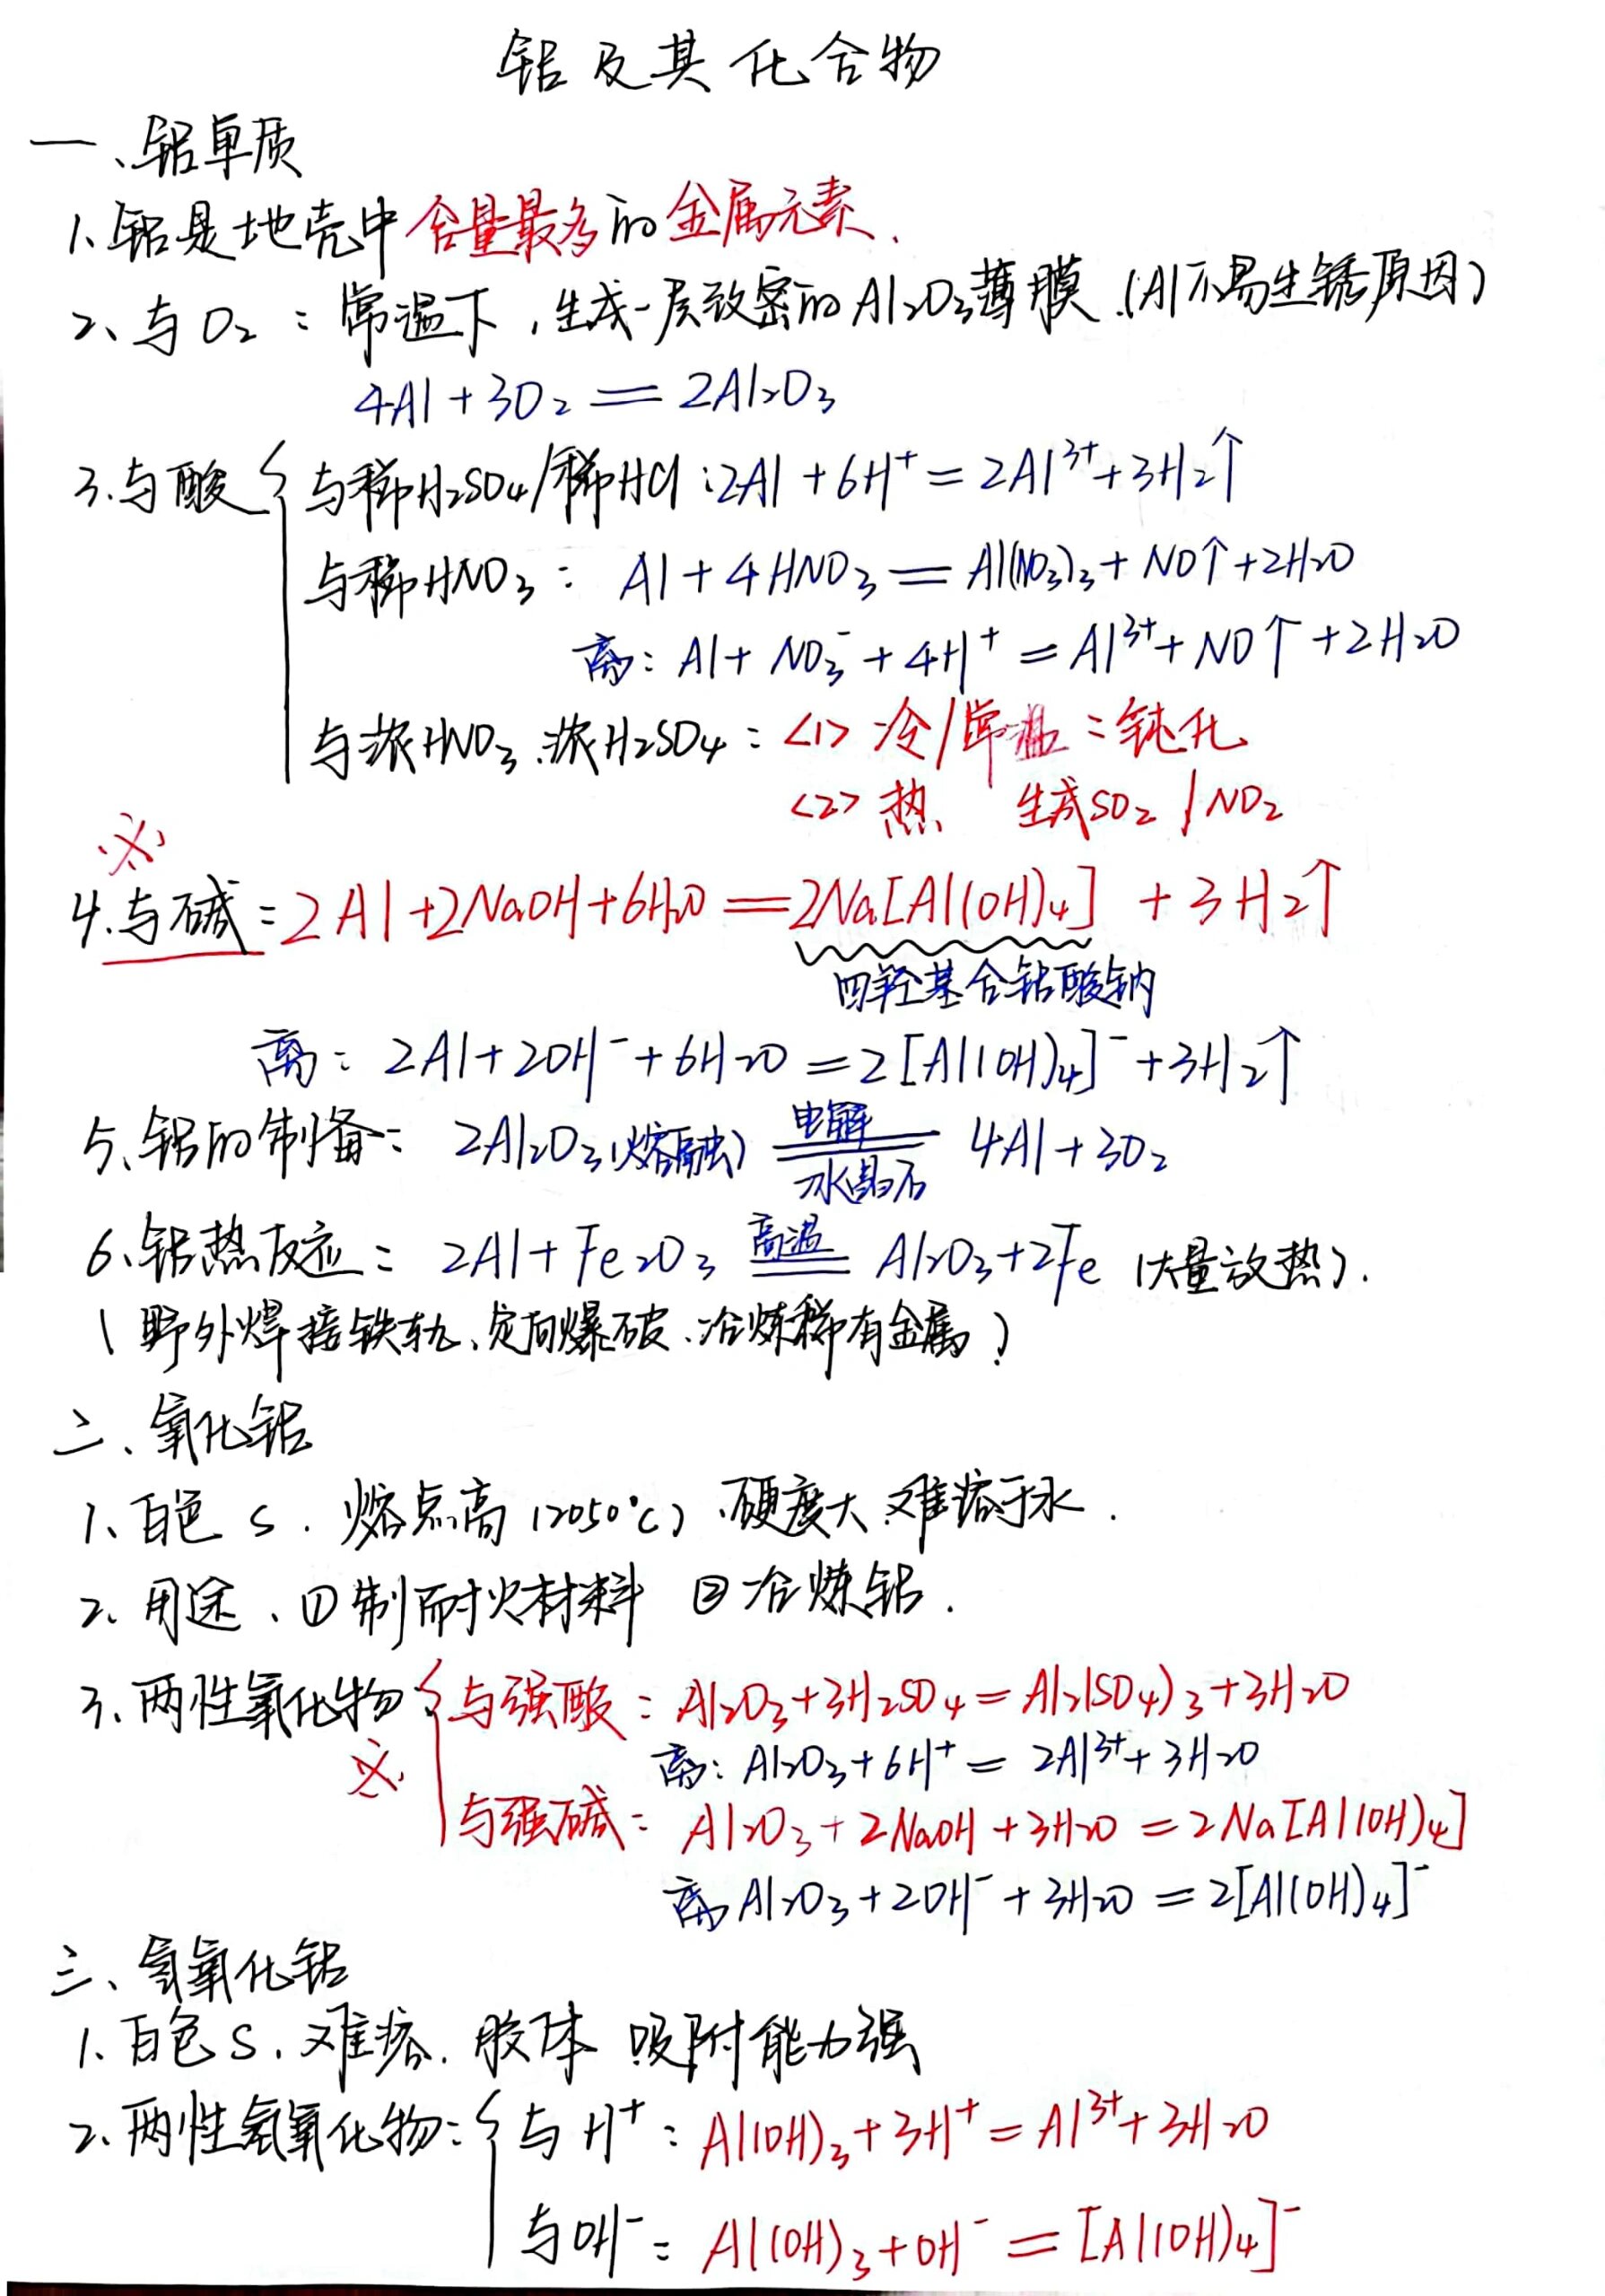 铝及其化合物
一、铝单质
1、铝是地壳中含量最多的金属元素.
2、与O₂：常温下，生成一层致密的Al₂O₃薄膜.(Al不易生锈原因)
4Al+3O₂══2Al₂O₃
3.与酸{与稀H₂SO₄/稀HCl:2Al+6H⁺=2Al³⁺+3H₂↑
与稀HNO₃：Al+4HNO₃══Al(NO₃)₃+NO↑+2H₂O
离：Al+NO₃⁻+4H⁺=Al³⁺+NO↑+2H₂O
与浓HNO₃.浓H₂SO₄：<1>冷/常温：钝化
<2>热 生成SO₂/NO₂
※
4.与碱：2Al+2NaOH+6H₂O══2Na[Al(OH)₄]+3H₂↑
四羟基合铝酸钠
离：2Al+2OH⁻+6H₂O=2[Al(OH)₄]⁻+3H₂↑
电解
5、铝的制备：2Al₂O₃(熔融)══4Al+3O₂
冰晶石
高温
6、铝热反应：2Al+Fe₂O₃══Al₂O₃+2Fe (大量放热).
(野外焊接铁轨、定向爆破、冶炼稀有金属)
二、氧化铝
1、白色S.熔点高(2050℃)、硬度大.难溶于水.
2.用途、①制耐火材料 ②冶炼铝.
3、两性氧化物{与强酸：Al₂O₃+3H₂SO₄=Al₂(SO₄)₃+3H₂O
※ 离：Al₂O₃+6H⁺=2Al³⁺+3H₂O
与强碱：Al₂O₃+2NaOH+3H₂O=2Na[Al(OH)₄]
离Al₂O₃+2OH⁻+3H₂O=2[Al(OH)₄]⁻
三、氢氧化铝
1、白色S.难溶.胶体 吸附能力强
2、两性氢氧化物:{与H⁺：Al(OH)₃+3H⁺=Al³⁺+3H₂O
与OH⁻：Al(OH)₃+OH⁻══[Al(OH)₄]⁻